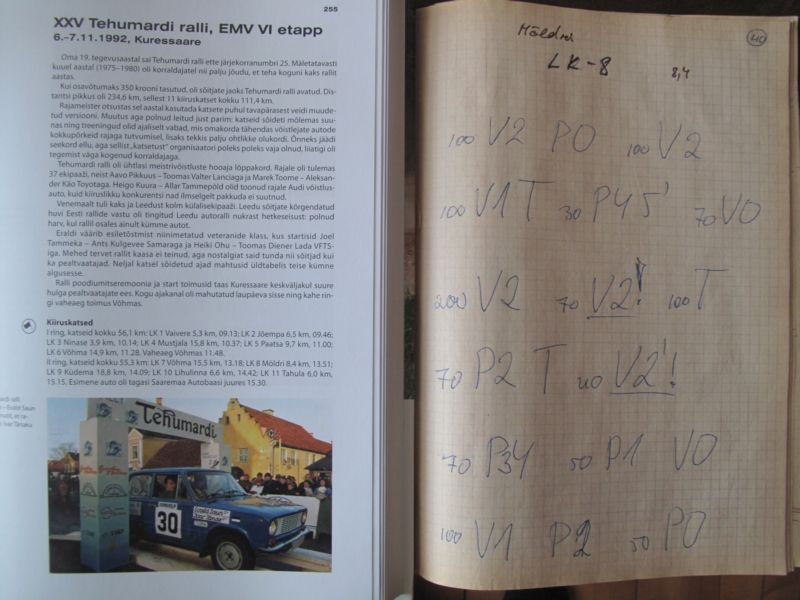 255
XXV Tehumardi ralli, EMV VI etapp
6.–7.11.1992, Kuressaare
Oma 19. tegevusaastal sai Tehumardi ralli ette järjekorranumbri 25. Mäletatavasti
kuuel aastal (1975–1980) oli korraldajatel nii palju jõudu, et teha koguni kaks rallit
aastas.
Kui osavõtumaks 350 krooni tasutud, oli sõitjate jaoks Tehumardi ralli avatud. Dis-
tantsi pikkus oli 234,6 km, sellest 11 kiiruskatset kokku 111,4 km.
Rajameister otsustas sel aastal kasutada katsete puhul tavapärasest veidi muude-
tud versiooni. Muutus aga polnud leitud just parim: katseid sõideti mõlemas suu-
nas ning treeningud olid ajaliselt vabad, mis omakorda tähendas võistlejate autode
kokkupõrkeid rajaga tutvumisel, lisaks tekkis palju ohtlikke olukordi. Õnneks jäädi
seekord ellu, aga sellist „katsetust" organisaatori poleks poleks vaja olnud, liiatigi oli
tegemist väga kogenud korraldajaga.
Tehumardi ralli oli ühtlasi meistrivõistluste hooaja lõppakord. Rajale oli tulemas
37 ekipaaži, neist Aavo Pikkuus – Toomas Valter Lanciaga ja Marek Toorne – Aleksan-
der Käo Toyotaga. Heigo Kuura – Allar Tammepõld olid toonud rajale Audi võistlus-
auto, kuid kiiruslikku konkurentsi nad ilmselgelt pakkuda ei suutnud.
Venemaalt tuli kaks ja Leedust kolm külalisekipaaži. Leedu sõitjate kõrgendatud
huvi Eesti rallide vastu oli tingitud Leedu autoralli nukrast hetkeseisust: polnud
harv, kui rallil osales ainult kümme autot.
Eraldi väärib esiletõstmist niinimetatud veteranide klass, kus startisid Joel
Tammeka – Ants Kulgevee Samaraga ja Heiki Ohu – Toomas Diener Lada VFTS-
iga. Mehed tervet rallit kaasa ei teinud, aga nostalgiat said tunda nii sõitjad kui
ka pealtvaatajad. Neljal katsel sõidetud ajad mahtusid üldtabelis teise kümne
algusesse.
Ralli poodiumitseremoonia ja start toimusid taas Kuressaare keskväljakul suure
hulga pealtvaatajate ees. Kogu ajakanal oli mahutatud laupäeva sisse ning kahe rin-
gi vaheaeg toimus Võhmas.
Kiiruskatsed
I ring, katseid kokku 56,1 km: LK 1 Vaivere 5,3 km, 09.13; LK 2 Jõempa 6,5 km, 09.46;
LK 3 Ninase 3,9 km, 10.14; LK 4 Mustjala 15,8 km, 10.37; LK 5 Paatsa 9,7 km, 11.00;
LK 6 Võhma 14,9 km, 11.28. Vaheaeg Võhmas 11.48.
II ring, katseid kokku 55,3 km: LK 7 Võhma 15,5 km, 13.18; LK 8 Möldri 8,4 km, 13.51;
LK 9 Küdema 18,8 km, 14.09; LK 10 Lihulinna 6,6 km, 14.42; LK 11 Tahula 6,0 km,
15.15. Esimene auto oli tagasi Saaremaa Autobaasi juures 15.30.
Tehumardi
30
40
Möldri
LK-8
8,4
100 V2 P0 100 V2
100 V1 T 30 P45' 70 V0
200 V2 70 V2! 100 T
70 P2 T 40 V2'!
70 P34 50 P1 V0
100 V1 P2 50 P0